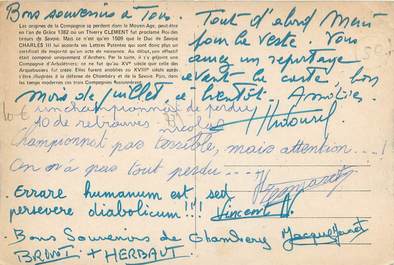 Bons souvenirs a Tous.
Les origines de la Compagnie se perdent dans le Moyen Age, peut-être
en l'an de Grâce 1382 où un Thierry CLEMENT fut proclamé Roi des
tireurs de Savoie. Mais ce n'est qu'en 1509 que le Duc de Savoie
CHARLES III fut accorda les Lettres Patentes qui sont donc plus un
certificat de majorité qu'un acte de naissance. Au début, son effectif
était composé uniquement d'Archers. Par la suite, il s'y grèffe une
Compagnie d'Arbalétriers; ce ne fut qu'au XVe siècle que celle des
Arquebusiers fut créée. Elles furent anoblies au XVIIIe siècle après
s'être illustrées à la défense de Chambéry et de la Savoie. Puis, dans
les temps modernes
Tout d'abord Merci
pour la veste Vous
avez un reportage
avant la carte bon
Mois de juillet et bientôt. Amitiés.
un championnat de perdu
10 de retrouvés Nicolas
Championnat pas terrible, mais attention...!
On n'a pas tout perdu...
. Errare humanum est, sed
persevere diabolicum!!! Vincent
. Bons Souvenirs de Chambery Jacques
BRUNOT + HERBAUT.